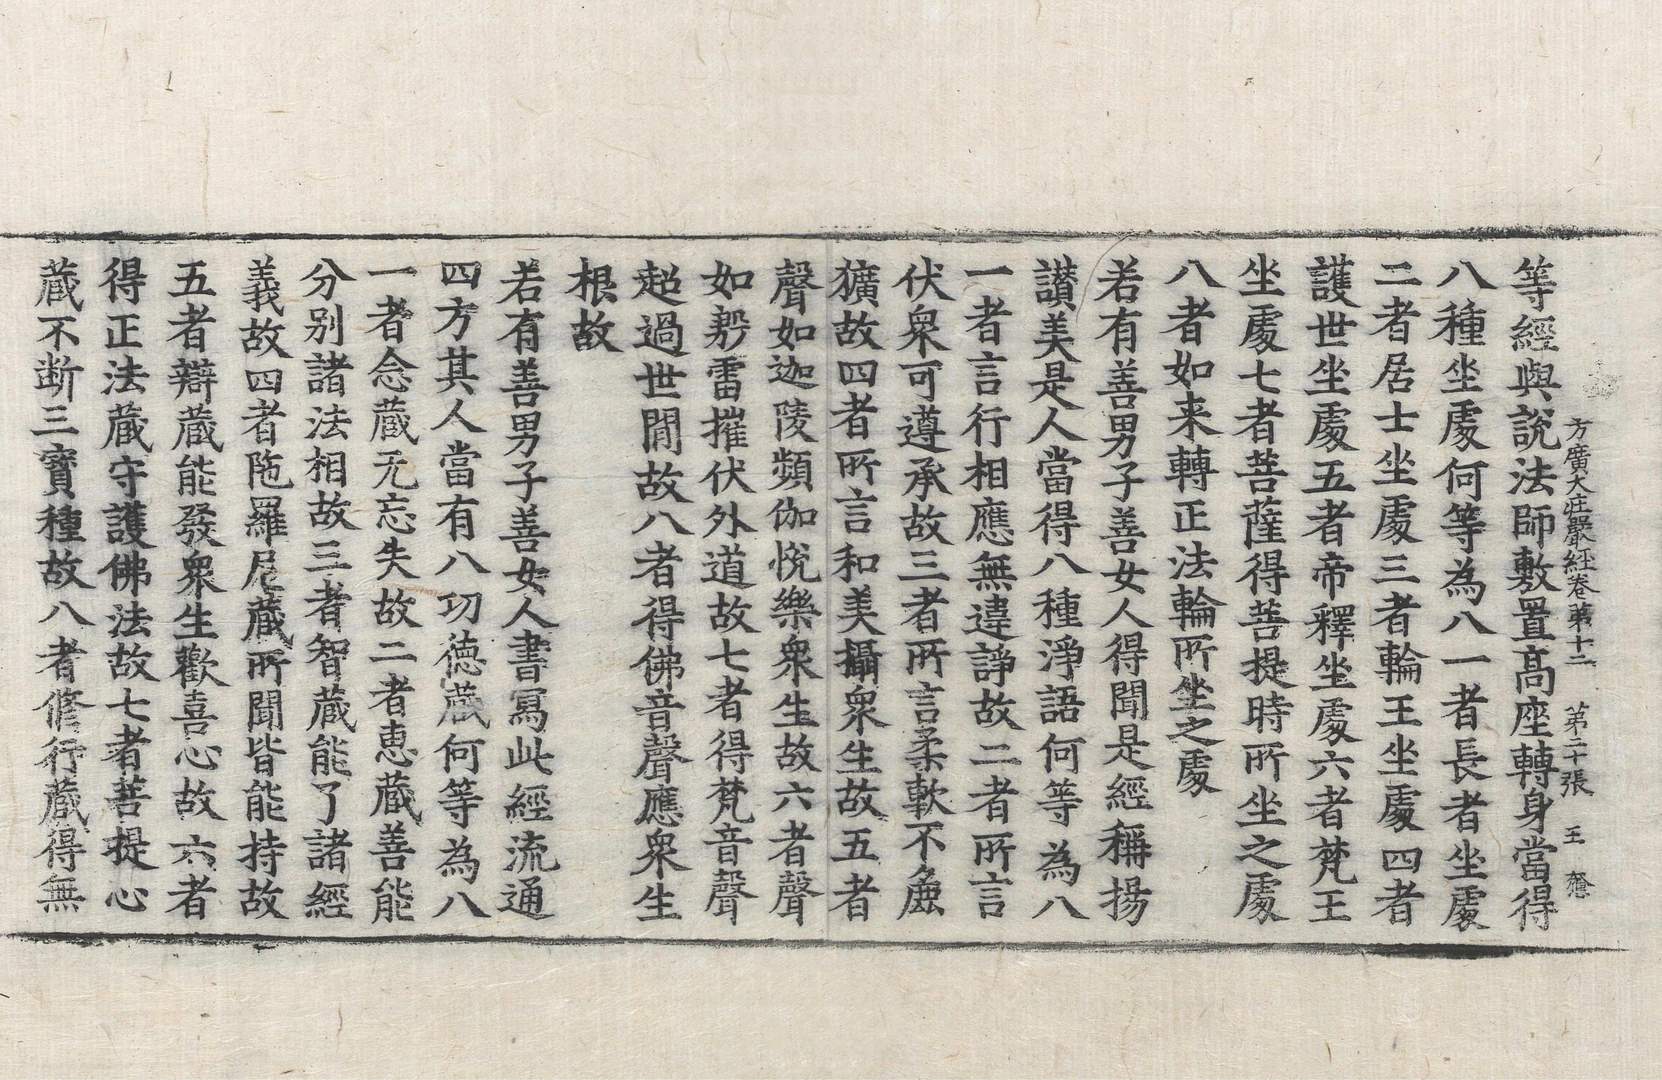 方廣大莊嚴經卷第十二 第二十張 王
等經與說法師敷置高座轉身當得
八種坐處何等為八一者長者坐處
二者居士坐處三者輪王坐處四者
護世坐處五者帝釋坐處六者梵王
坐處七者菩薩得菩提時所坐之處
八者如来轉正法輪所坐之處
若有善男子善女人得聞是經稱揚
讃美是人當得八種淨語何等為八
一者言行相應無違諍故二者所言
伏衆可遵承故三者所言柔軟不麁
獷故四者所言和美攝衆生故五者
聲如迦陵頻伽悅樂衆生故六者聲
如㲉雷摧伏外道故七者得梵音聲
超過世閒故八者得佛音聲應衆生
根故
若有善男子善女人書寫此經流通
四方其人當有八功德蔵何等為八
一者念蔵无忘失故二者恵蔵善能
分別諸法相故三者智蔵能了諸經
義故四者陁羅尼蔵所聞皆能持故
五者辯蔵能發衆生歡喜心故六者
得正法蔵守護佛法故七者菩提心
蔵不断三寶種故八者修行蔵得無